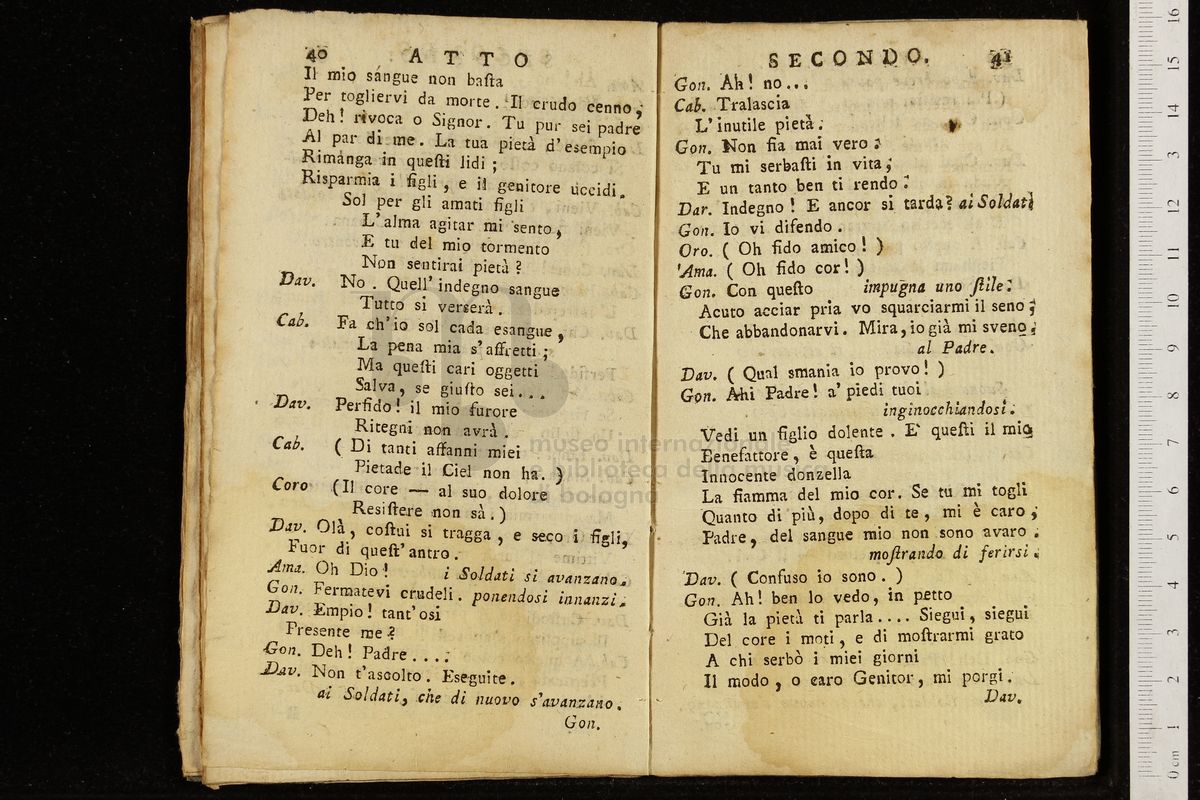 40 ATTO
Il mio sángue non baſta
Per togliervi da morte. Il crudo cenno,
Deh! rivoca o Signor. Tu pur sei padre
Al par di me. La tua pietà d'esempio
Rimánga in queſti lidi;
Risparmia i figli, e il genitore uccidi.
Sol per gli amati figli
L'alma agitar mi sento,
E tu del mio tormento
Non sentirai pietà?
Dav. No. Quell' indegno sangue
Tutto si verserà.
Cab. Fa ch'io sol cada esangue,
La pena mia s'affretti;
Ma queſti cari oggetti
Salva, se giuſto sei...
Dav. Perfido! il mio furore
Ritegni non avrà.
Cab. (Di tanti affanni miei
Pietade il Ciel non ha.)
Coro (Il core — al suo dolore
Resiſtere non sà.)
Dav. Olà, coſtui si tragga, e seco i figli,
Fuor di queſt'antro.
Ama. Oh Dio! i Soldati si avanzano.
Gon. Fermatevi crudeli. ponendosi innanzi.
Dav. Empio! tant'osi
Presente me?
Gon. Deh! Padre....
Dav. Non t'ascolto. Eseguite.
ai Soldati, che di nuovo s'avanzano.
Gon.
SECONDO. 41
Gon. Ah! no...
Cab. Tralascia
L'inutile pietà.
Gon. Non fia mai vero:
Tu mi serbaſti in vita;
E un tanto ben ti rendo.
Dar. Indegno! E ancor si tarda? ai Soldati
Gon. Io vi difendo.
Oro. (Oh fido amico!)
Ama. (Oh fido cor!)
Gon. Con queſto impugna uno ſtile.
Acuto acciar pria vo squarciarmi il seno;
Che abbandonarvi. Mira, io già mi sveno.
al Padre.
Dav. (Qual smania io provo!)
Gon. Ahi Padre! a' piedi tuoi
inginocchiandosi.
Vedi un figlio dolente. E' queſti il mio
Eenefattore, è queſta
Innocente donzella
La fiamma del mio cor. Se tu mi togli
Quanto di più, dopo di te, mi è caro,
Padre, del sangue mio non sono avaro.
moſtrando di ferirsi.
Dav. (Confuso io sono.)
Gon. Ah! ben lo vedo, in petto
Già la pietà ti parla.... Siegui, siegui
Del core i moti, e di moſtrarmi grato
A chi serbò i miei giorni
Il modo, o caro Genitor, mi porgi.
Dav.
museo internazionale
e biblioteca della musica
di bologna